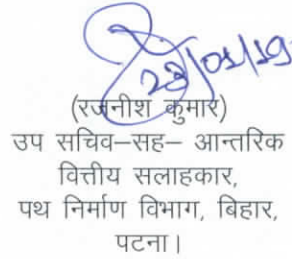 23/01/19
(रजनीश कुमार)
उप सचिव–सह– आन्तरिक
वित्तीय सलाहकार,
पथ निर्माण विभाग, बिहार,
पटना।